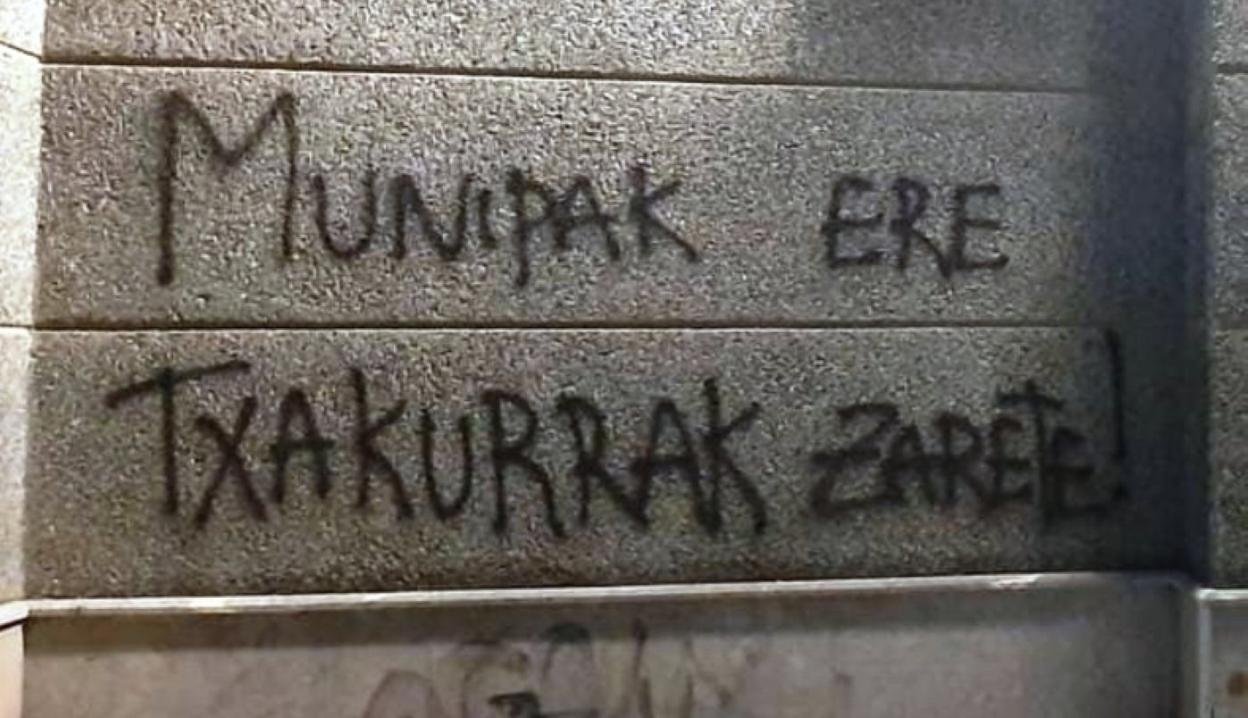 MUNIPAK ERE
TXAKURRAK ZARETE!